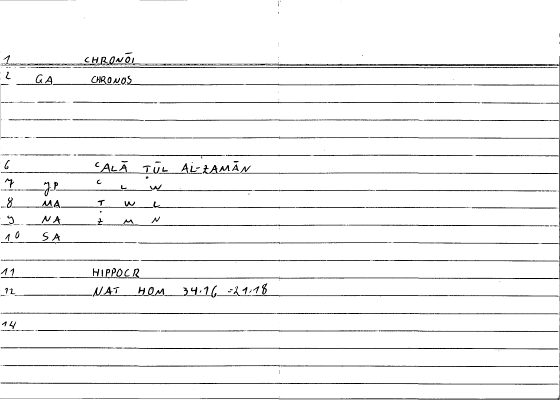 1 CHRONŌI
2 GA CHRONOS
6 ʿALĀ ṬŪL AL-ZAMĀN
7 JP ʿ L W
8 MA Ṭ W L
9 NA Z M N
10 SA
11 HIPPOCR
12 NAT HOM 34.16 =21.18
14